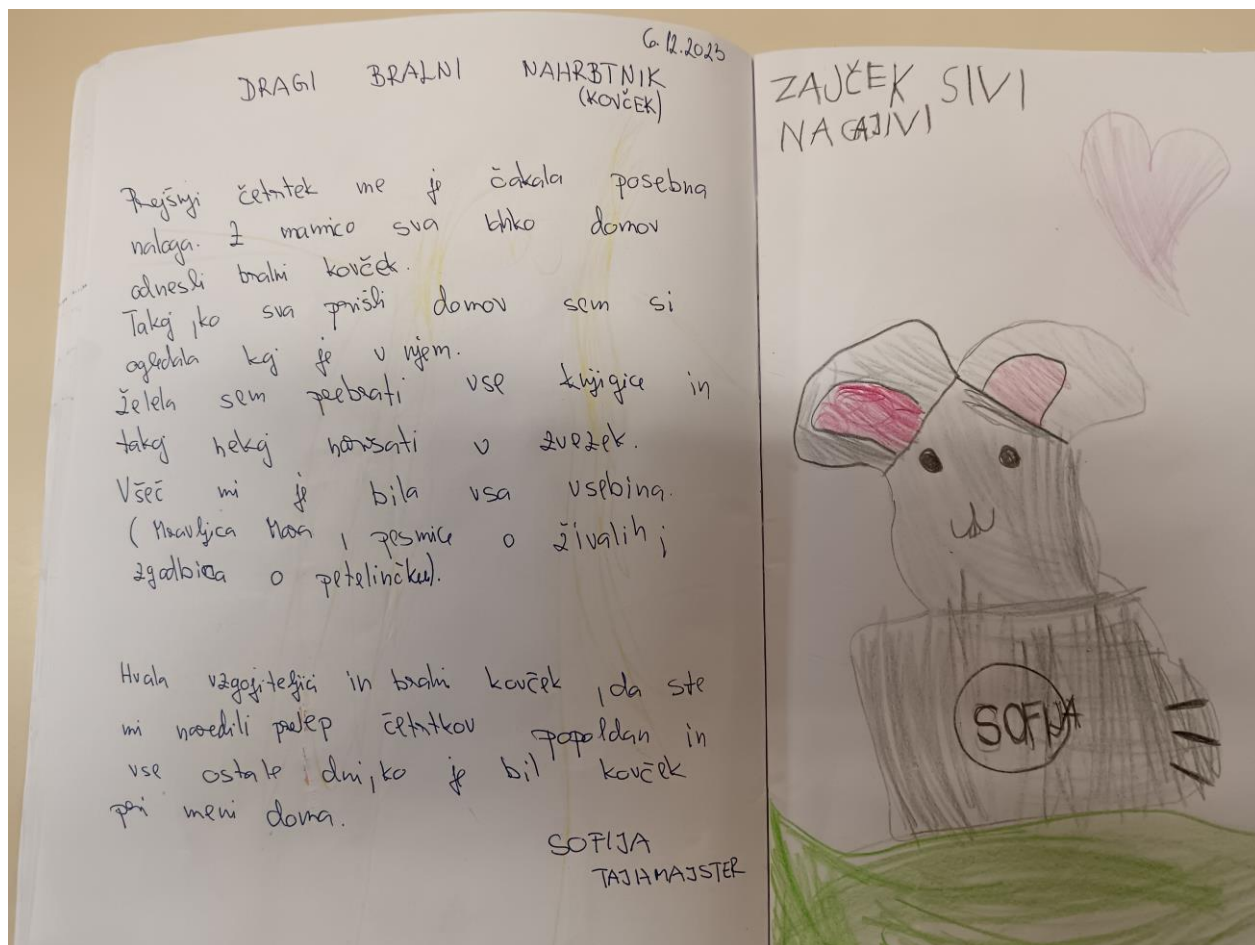 6.12.2023
DRAGI BRALNI NAHRBTNIK
(KOVČEK)
Prejšnji četrtek me je čakala posebna
naloga. Z mamico sva lahko domov
odnesli bralni kovček.
Takoj, ko sva prišli domov sem si
ogledala kaj je v njem.
Želela sem prebrati vse knjigice in
takoj nekaj narisati v zvezek.
Všeč mi je bila vsa vsebina.
(Mravljica Mara, pesmice o živalih,
zgodbica o petelinčku).
Hvala vzgojiteljici in bralni kovček, da ste
mi naredili prelep četrtkov popoldan in
vse ostale dni, ko je bil kovček
pri meni doma.
SOFIJA
ZAJČEK SIVI
NAGAJIVI
SOFIJA